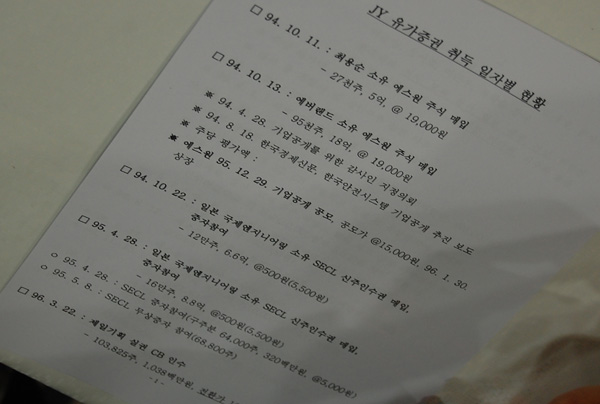 JY 유가증권 취득 일자별 현황
□ 94. 10. 11. : 최용순 소유 에스원 주식 매입
- 27천주, 5억, @ 19,000원
□ 94. 10. 13. : 에버랜드 소유 에스원 주식 매입
- 95천주, 18억, @ 19,000원
※ 94. 4. 28. 기업공개를 위한 감사인 지정의뢰
※ 94. 8. 18. 한국경제신문, 한국안전시스템 기업공개 추진 보도
※ 주당 평가액 :
※ 에스원 95. 12. 29. 기업공개 공모, 공모가 @15,000원, 96. 1. 30.
상장
□ 94. 10. 22. : 일본 국제엔지니어링 소유 SECL 신주인수권 매입,
증자참여
- 12만주, 6.6억, @500원(5,500원)
□ 95. 4. 28. : 일본 국제엔지니어링 소유 SECL 신주인수권 매입,
증자참여
- 16만주, 8.8억, @500원(5,500원)
○ 95. 4. 28. : SECL 증자참여(구주분 64,000주, 320백만원, @5,000원)
○ 95. 5. 8. : SECL 무상증자 참여(68,800주)
□ 96. 3. 22. : 제일기획 실권 CB 인수
- 103,825주, 1,038백만원, 전환가
- 1 -